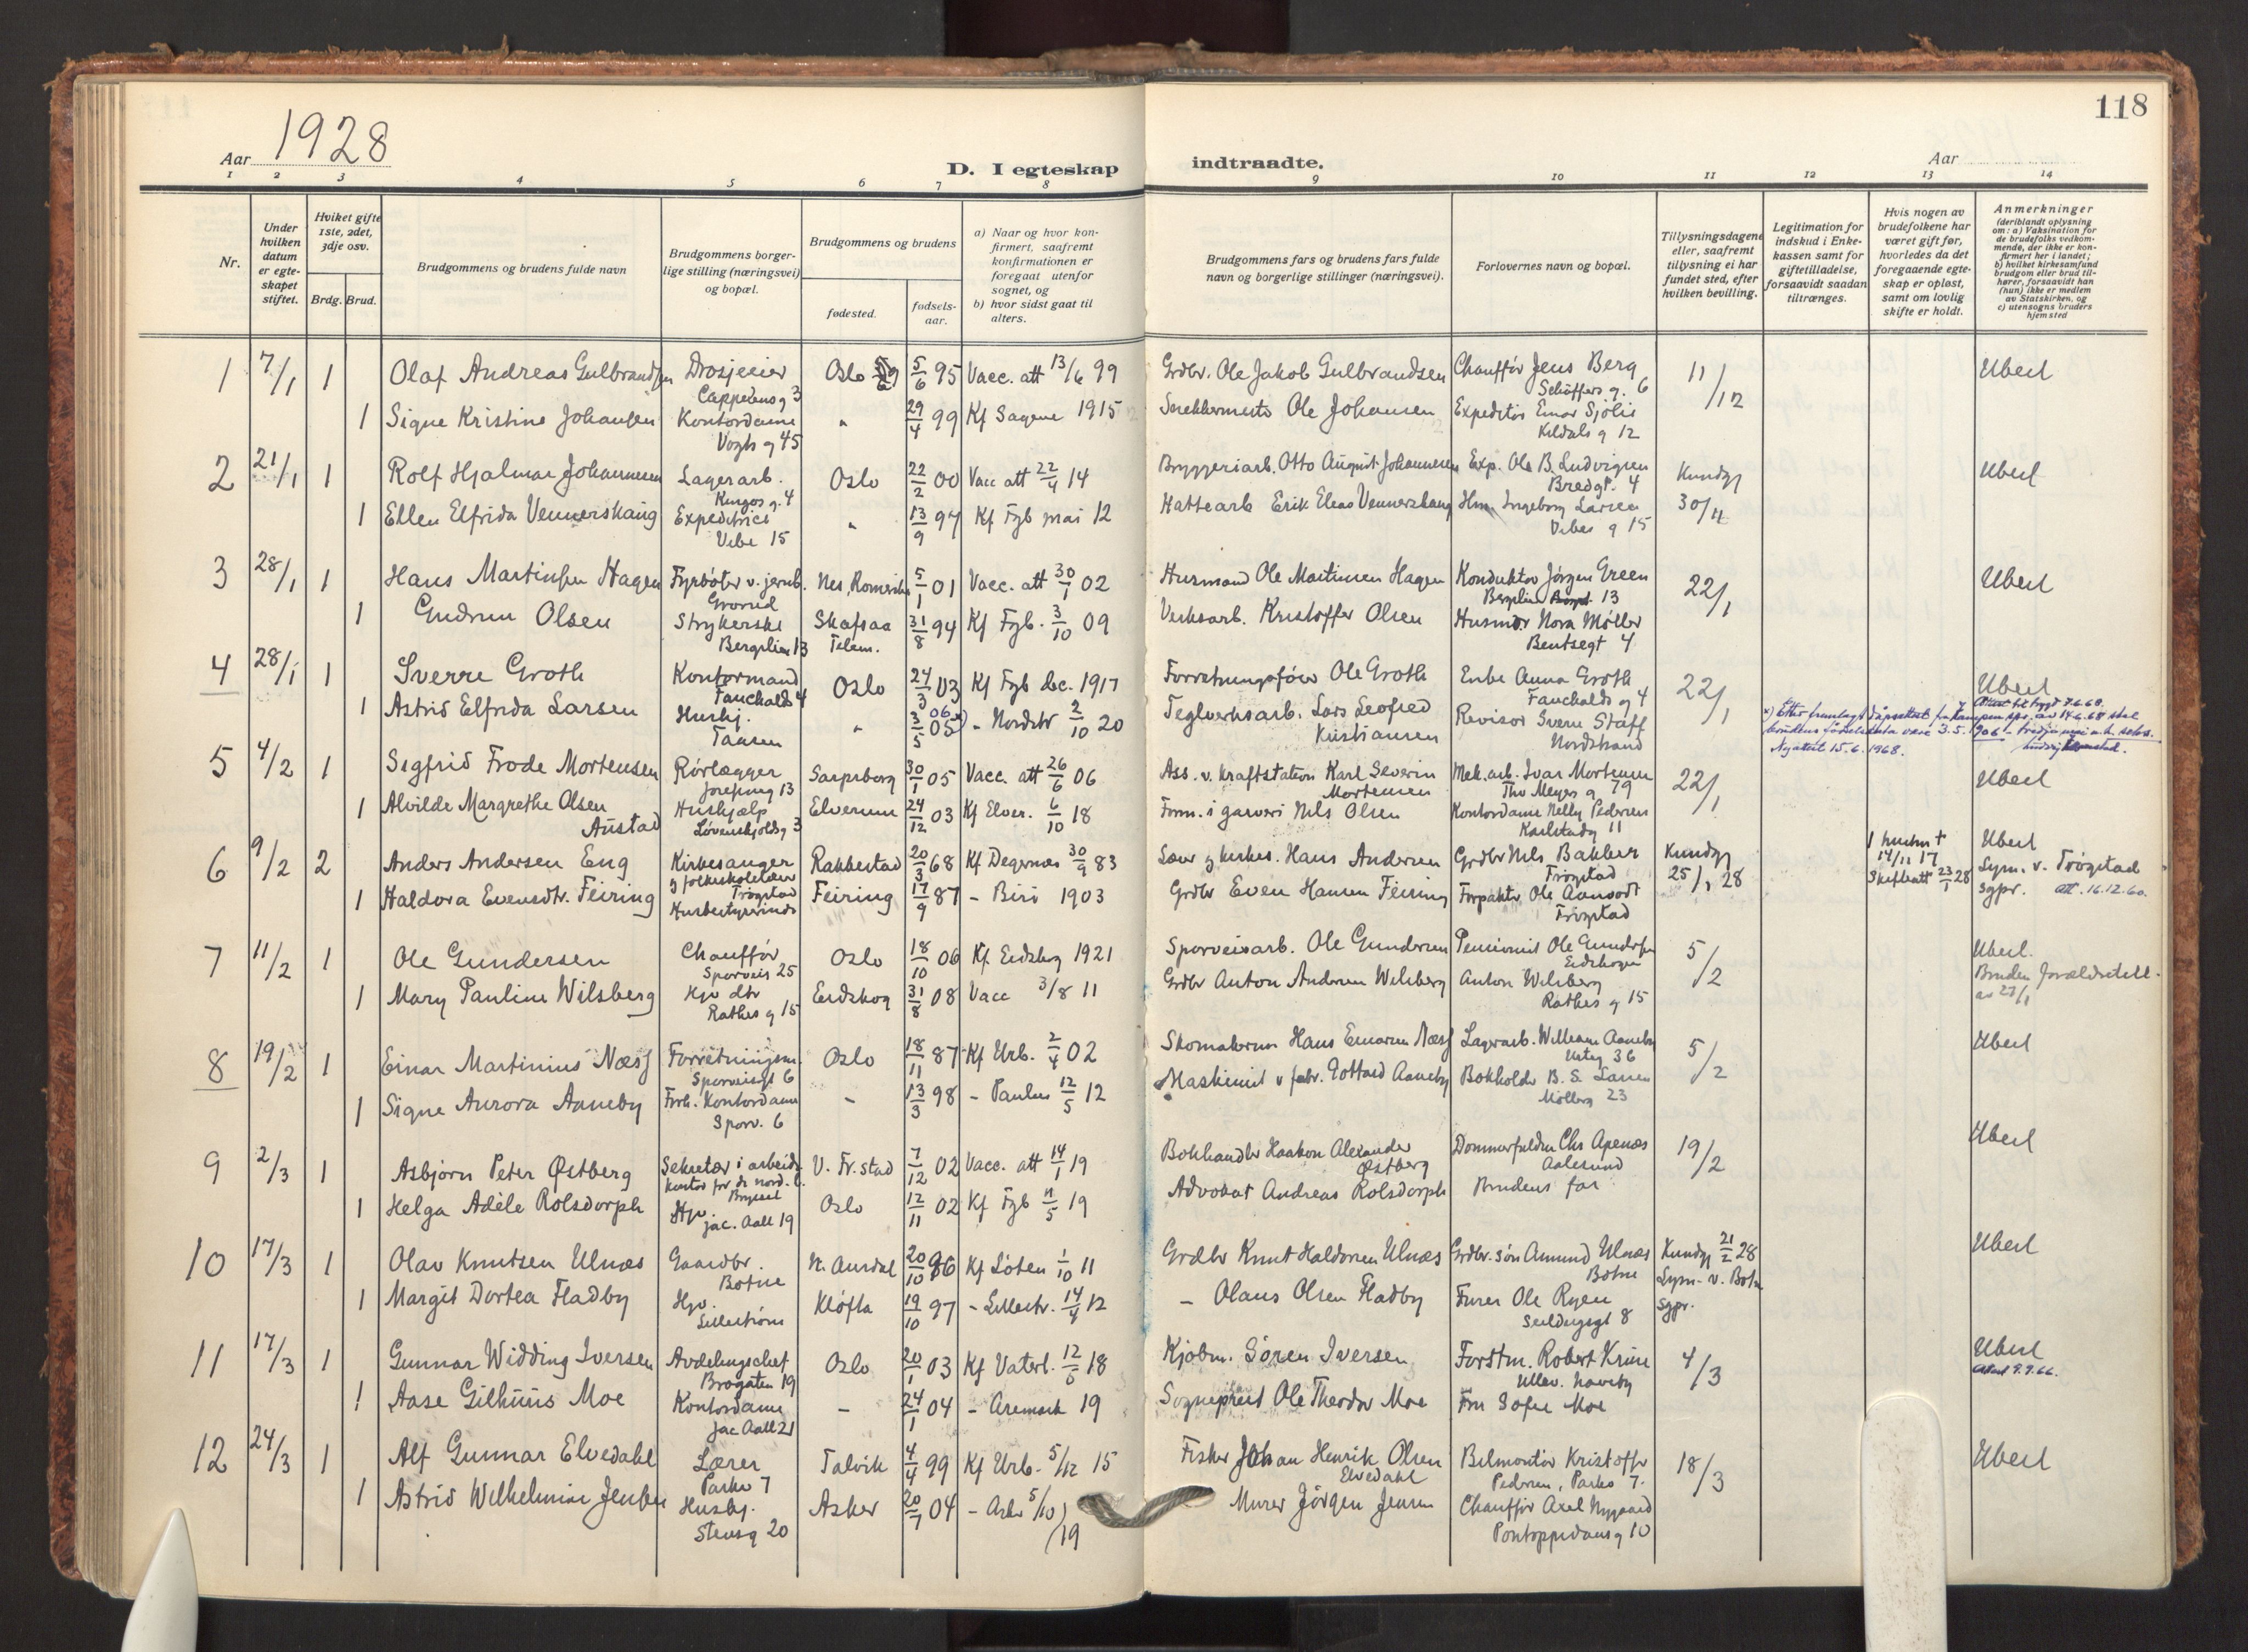 118
Aar 1928
D. I egteskap indtraadte.
Aar
1 2 3 4 5 6 7 8 9 10 11 12 13 14
Nr.
Under hvilken datum er egteskapet stiftet.
Hviket gifte 1ste, 2det, 3dje osv.
Brdg. Brud.
Brudgommens og brudens fulde navn
Brudgommens borgerlige stilling (næringsvei) og bopæl.
Brudgommens og brudens
fødested.
fødselsaar.
a) Naar og hvor konfirmert, saafremt konfirmationen er foregaat utenfor sognet, og
b) hvor sidst gaat til alters.
Brudgommens fars og brudens fars fulde navn og borgerlige stillinger (næringsvei).
Forlovernes navn og bopæl.
Tillysningsdagene eller, saafremt tillysning ei har fundet sted, efter hvilken bevilling.
Legitimation for indskud i Enkekassen samt for giftetilladelse, forsaavidt saadan tiltrænges.
Hvis nogen av brudefolkene har været gift før, hvorledes da det foregaaende egteskap er opløst, samt om lovlig skifte er holdt.
Anmerkninger (deriblandt oplysning om: a) Vaksination for de brudefolks vedkommende, der ikke er konfirmert her i landet; b) hvilket kirkesamfund brudgom eller brud tilhører, forsaavidt han (hun) ikke er medlem av Statskirken, og c) utensogns bruders hjemsted
1 7/1 1 Olaf Andreas Gulbrandsen Drosjeeier Oslo 5/6 95 Vacc. att 13/6 99 Grdbr. Ole Jakob Gulbrandsen Chauffør Jens Berg 11/12 Ubert
Cappelens g 3 Schøffers g. 6
1 Signe Kristine Johansen Kontordame " 29/4 99 Kf Sagene 1915 Snekkermests Ole Johansen Expeditør Einar Sjølie
Vogts g 45 Kildals g 12
2 21/1 1 Rolf Hjalmar Johannesen Lagerarb. Oslo 22/2 00 Vacc att 22/4 14 Bryggeriarb. Otto August Johannesen Exp. Ole B. Ludvigsen Kundgj Ubert
Kingos g. 4 Bredgt. 4
1 Ellen Elfrida Vennerskaug Expeditrice " 13/9 94 Kf Fgb mai 12 Hattearb Erik Elias Vennerskaug Hm. Ingeborg Larsen 30/11
Vibe 15 Vibes g 15
3 28/1 1 Hans Martinsen Hagen Fyrbøter v. jernb. Nes, Romerike 5/1 01 Vacc. att 30/1 02 Husmand Ole Martinsen Hagen Konduktør Jørgen Green 22/1 Ubert
Grorud Bergslien 13
1 Gudrun Olsen Strykerske Skafsaa 31/8 94 Kf Fgb. 3/10 09 Verksarb. Kristoffer Olsen Husmor Nora Møller
Bergslien 13 Telem. Bentsegt 4
4 28/1 1 Sverre Groth Kontormand Oslo 24/3 03 Kf Fgb dec. 1917 Forretningsfører Ole Groth Enke Anna Groth 22/1 Ubert
Fauchalds 4 Fauchalds g 4
1 Astrid Elfrida Larsen Hushj. " 3/5 05 06 x) - Nordstr 2/10 20 Teglverksarb. Lars Leofred Kristiansen Revisor Sverre Staff
Taasen Nordstrand
Nyattest 15.6.1968.
5 4/2 1 Sigfrid Frode Mortensen Rørlægger Sarpsborg 30/1 05 Vacc. att 26/6 06 Ass. v. kraftstation Karl Severin Mortensen Mek. arb. Ivar Mortensen 22/1 Ubert
Josefines 13 Thv Meyers g 79
1 Alvilde Margrethe Olsen Austad Hushjælp Elverum 24/12 03 Kf Elver. 6/10 18 Form. i garveri Nils Olsen Kontordame Nelly Pedersen
Løvenskjolds g 3 Karlstadg 11
6 9/2 2 Anders Andersen Eng Kirkesanger Rakkestad 20/3 68 Kf Degernæs 30/9 83 Lærer og kirkes. Hans Andersen Grdbr Nils Bakker Kundgj 1 hustru † 14/11 17 Ubert
g folkeskolelærer Trøgstad Trøgstad 25/1 28 Skifteatt 23/1 28 Lysn. v. Trøgstad
1 Haldora Evensdtr. Feiring Husbestyrerinde Feiring 17/9 87 - Biri 1903 Grdbr Even Hansen Feiring Forpakter Ole Aamodt sgpr. att. 16.12.60.
Trøgstad
7 11/2 1 Ole Gundersen Chauffør Oslo 18/10 06 Kf. Eidskog 1921 Sporveisarb. Ole Gundersen Pensionist Ole Gundersen 5/2 Ubert.
Sporveis 25 Eidskogen
1 Mary Pauline Wilsberg Hjv dtr Eidskog 31/8 08 Vacc 3/8 11 Grdbr Anton Andersen Wilsberg Anton Wilsberg Bruden forældretill. av 23/1
Rathes g 15 Rathes g 15
8 19/2 1 Einar Martinius Næss Forretningsm. Oslo 18/11 87 Kf Urb. 2/4 02 Skomakerm Hans Einarsen Næss Lagerarb. William Aaneby 5/2 Ubert
Sporveisgt 6 Urteg 36
1 Signe Aurora Aaneby Forh. Kontordame - 13/3 98 - Paulus 12/5 12 Maskinist v fabr. Gottard Aaneby Bokholder B. S. Larsen
Sporv. 6 Møllerg 23
9 2/3 1 Asbjørn Peter Østberg Sekretær i arbeids- V. Fr.stad 7/12 02 Vacc. att 14/1 19 Bokhandler Haakon Alexander Østberg Dommerfuldm Chr Apenæs 19/2 Ubert
kontor for de nord. l. Bryssel Aalesund
1 Helga Adèle Rolsdorph Hjv. Oslo 12/11 02 Kf Fgb 11/5 19 Advokat Andreas Rolsdorph Brudens far
Jac. Aall 19
10 17/3 1 Olav Knutsen Ulnæs Gaardbr. N. Aurdal 20/10 86 Kf Løten 1/10 11 Grdbr Knut Haldorsen Ulnæs Grdbr. søn Amund Ulnæs Kundgj 21/2 28 Ubert
Botne Botne Lysn. v. Botne
1 Margit Dortea Fladby Hjv. Kløfta 19/10 97 - Lillestr. 14/4 12 - Olaus Olsen Fladby Furer Ole Ryen sgpr.
Lillestrøm Seildugsgt 8
11 17/3 1 Gunnar Widding Iversen Avdelingschef Oslo 20/1 03 Kf Vaterl. 12/5 18 Kjøbm. Søren Iversen Forstm. Robert Kruse 4/3 Ubert
Brogaten 19 Ullev. haveby 9.9.66.
1 Aase Gilhuus Moe Kontordame - 24/1 04 - Aremark 19 Sogneprest Ole Theodor Moe Fru Sofie Moe
Jac Aall 21
12 24/3 1 Alf Gunnar Elvedahl Lærer Talvik 4/4 99 Kf Urb. 5/12 15 Fisker Johan Henrik Olsen Elvedahl Bilmontør Kristoffer 18/3 Ubert
Parkv 7 Pedersen, Parkv 7.
1 Astrid Wilhelmine Jensen Hushj. Asker 20/7 04 - Asker 5/10 19 Murer Jørgen Jensen Chauffør Axel Nygaard
Stensg 20 Pontoppidans g 10